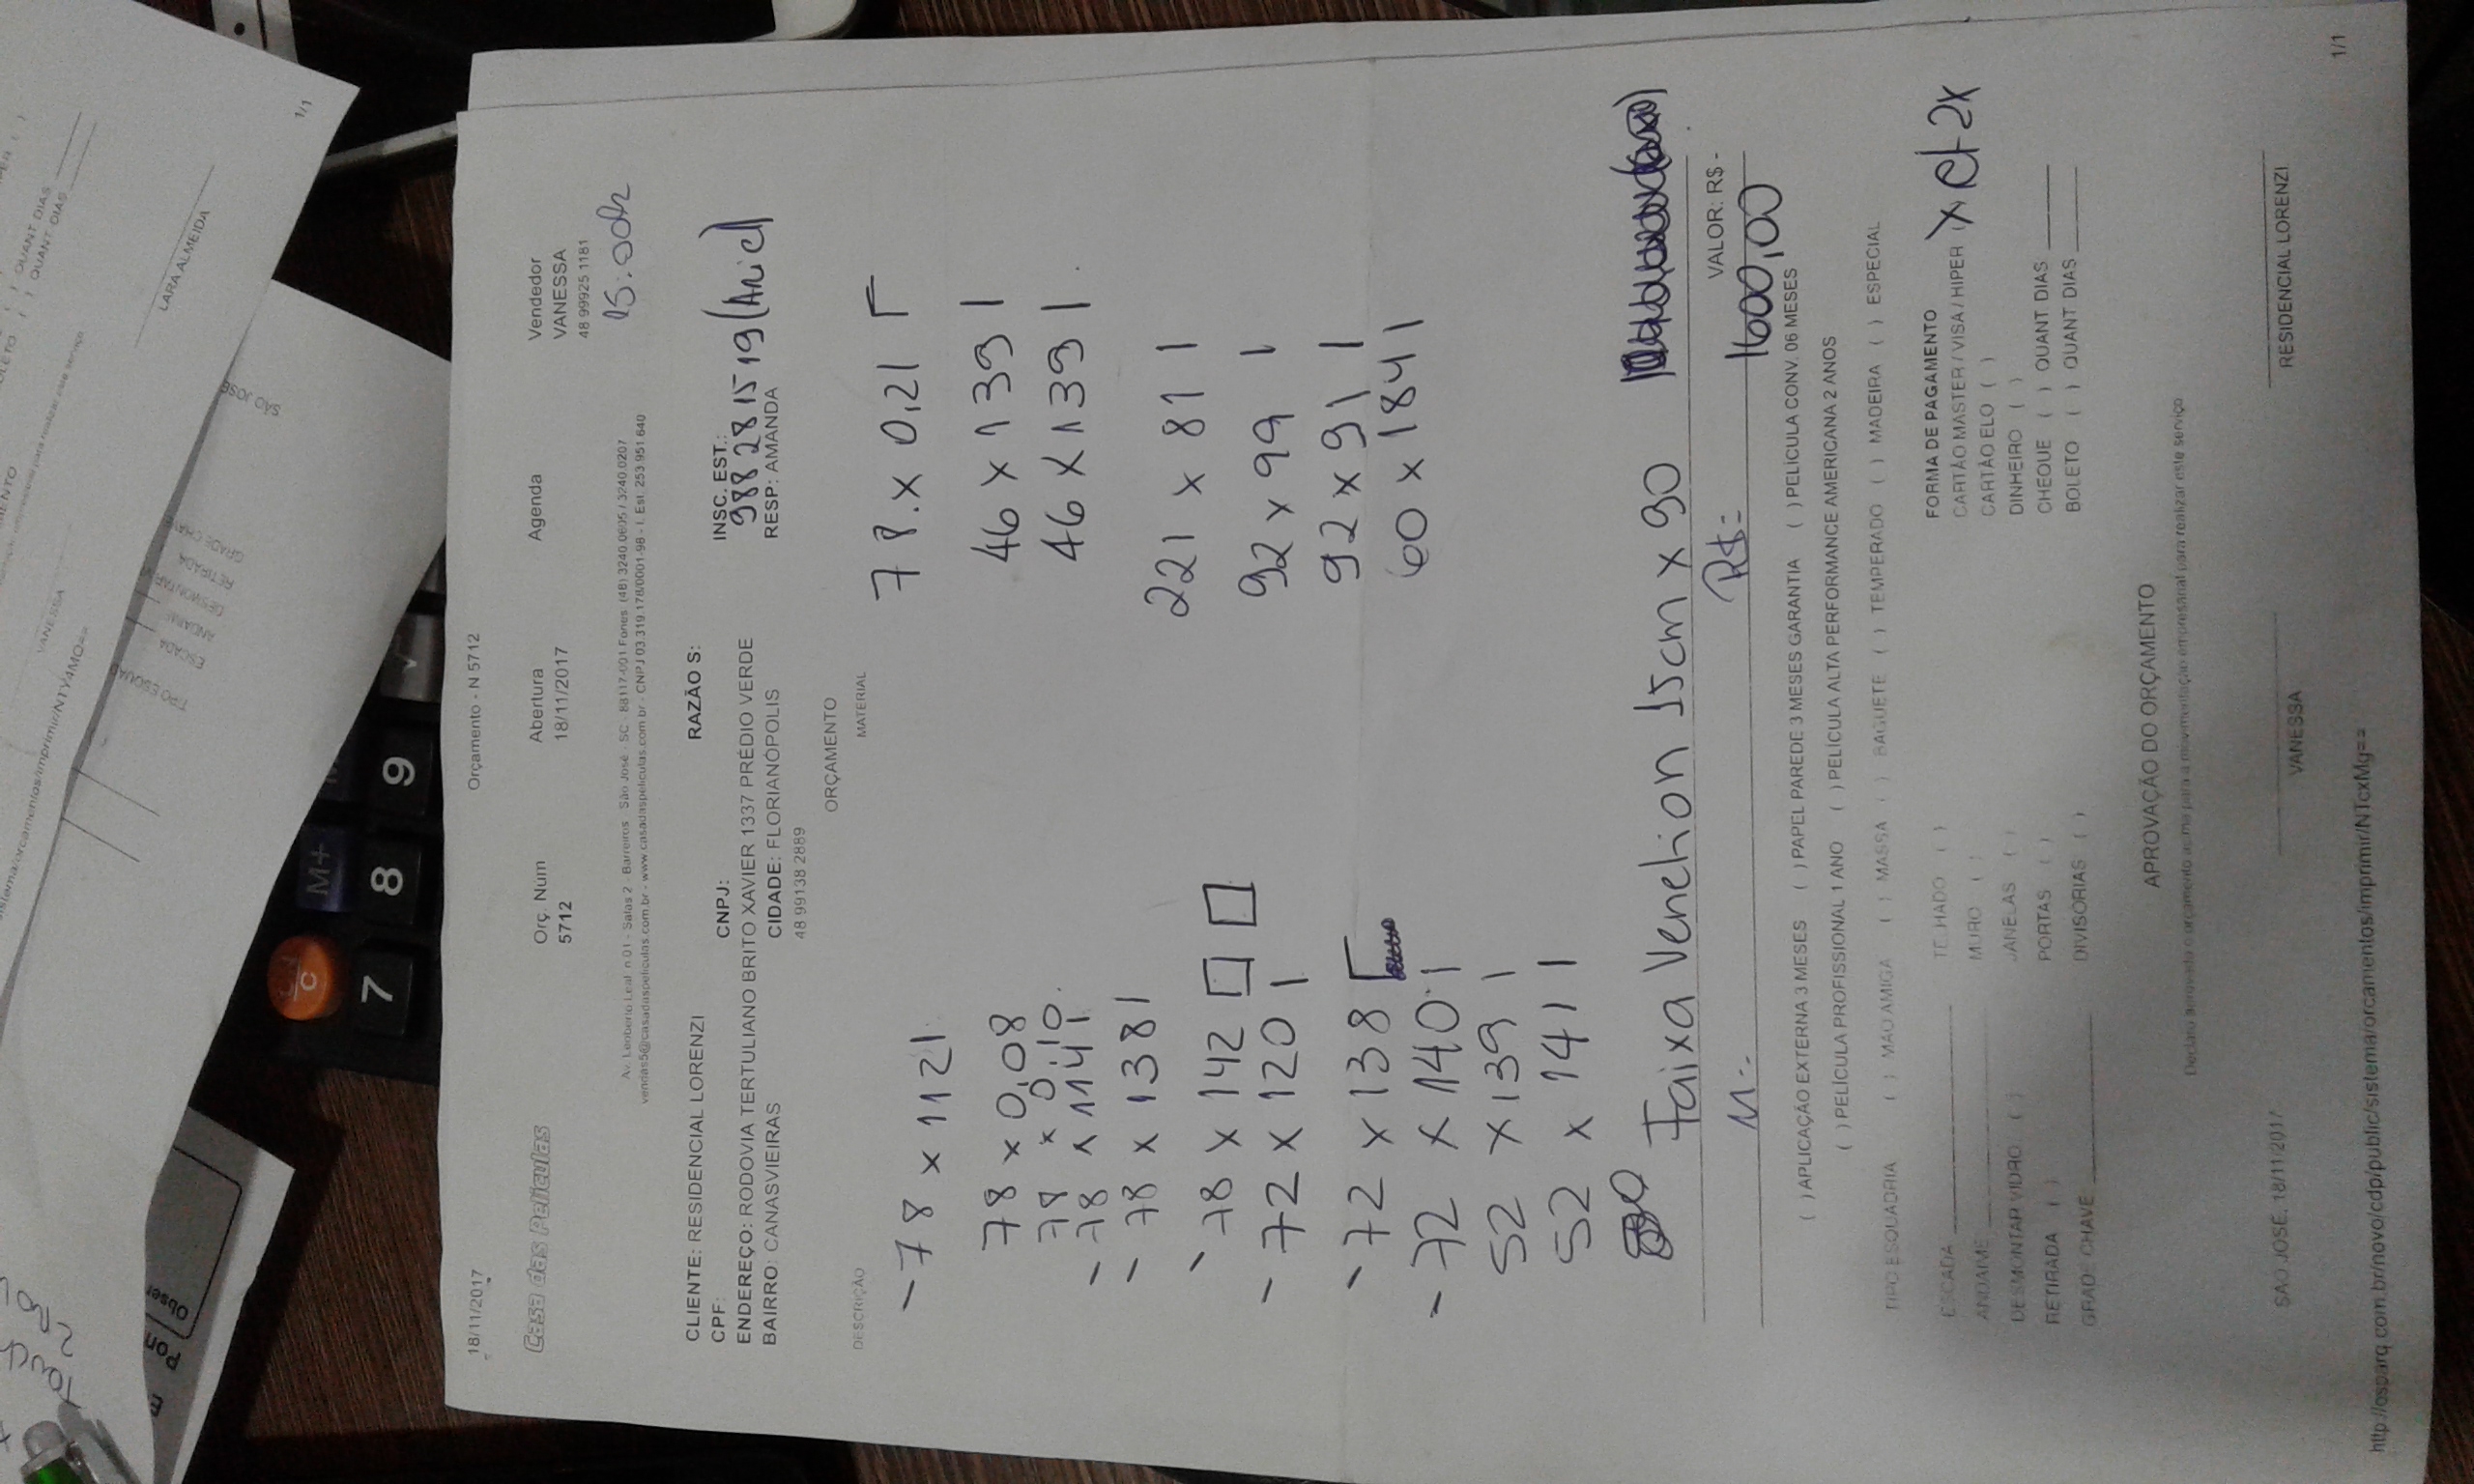 18/11/2017 Orçamento - N 5712
Casa das Películas
Orç. Num Abertura Agenda Vendedor
5712 18/11/2017 VANESSA
48 99925 1181
15:00h
Av. Leoberto Leal, n 01 - Salas 2 - Barreiros - São José - SC 88117-001 Fones: (48) 3240.0605 / 3240.0207
vendas5@casadaspeliculas.com.br - www.casadaspeliculas.com.br - CNPJ 03.319.178/0001-98 - I. Est. 253 951 640
CLIENTE: RESIDENCIAL LORENZI RAZÃO S:
CPF: CNPJ: INSC. EST.:
988281519 (Aniel)
ENDEREÇO: RODOVIA TERTULIANO BRITO XAVIER 1337 PRÉDIO VERDE
BAIRRO: CANASVIEIRAS CIDADE: FLORIANÓPOLIS RESP: AMANDA
48 99138 2889
ORÇAMENTO
DESCRIÇÃO MATERIAL
- 78 x 112 | 78 . x 0,21 Γ
78 x 0,08 46 x 139 |
78 x 0,10 46 x 139 |
- 78 x 114 |
- 78 x 138 | 221 x 81 |
- 78 x 142 □ □ 92 x 99 |
- 72 x 120 | 92 x 91 |
- 72 x 138 Γ 60 x 184 |
- 72 x 140 |
52 x 139 |
52 x 141 |
Faixa Venetion 15cm x 90
VALOR: R$ -
M: R$= 1600,00
( ) APLICAÇÃO EXTERNA 3 MESES ( ) PAPEL PAREDE 3 MESES GARANTIA ( ) PELÍCULA CONV. 06 MESES
( ) PELÍCULA PROFISSIONAL 1 ANO ( ) PELÍCULA ALTA PERFORMANCE AMERICANA 2 ANOS
TIPO ESQUADRIA ( ) MÃO AMIGA ( ) MASSA ( ) BAGUETE ( ) TEMPERADO ( ) MADEIRA ( ) ESPECIAL
ESCADA TELHADO ( ) FORMA DE PAGAMENTO
ANDAIME MURO ( ) CARTÃO MASTER / VISA / HIPER X ct 2x
DESMONTAR VIDRO ( ) JANELAS ( ) CARTÃO ELO ( )
RETIRADA ( ) PORTAS ( ) DINHEIRO ( )
GRADE CHAVE DIVISÓRIAS ( ) CHEQUE ( ) QUANT DIAS
BOLETO ( ) QUANT DIAS
APROVAÇÃO DO ORÇAMENTO
Declaro aprovado o orçamento acima para a movimentação empresarial para realizar este serviço
SÃO JOSÉ, 18/11/2017 VANESSA RESIDENCIAL LORENZI
http://osparq.com.br/novo/cdp/public/sistema/orcamentos/imprimir/NTcxMg== 1/1
LARA ALMEIDA
1/1
QUANT DIAS
QUANT DIAS
VANESSA
SÃO JOSÉ
TIPO ESQUAD
ESCADA
ANDAIME
DESMONTAR
RETIRADA
GRADE CHAV
Obser
Pon
M+
7 8 9
C
√